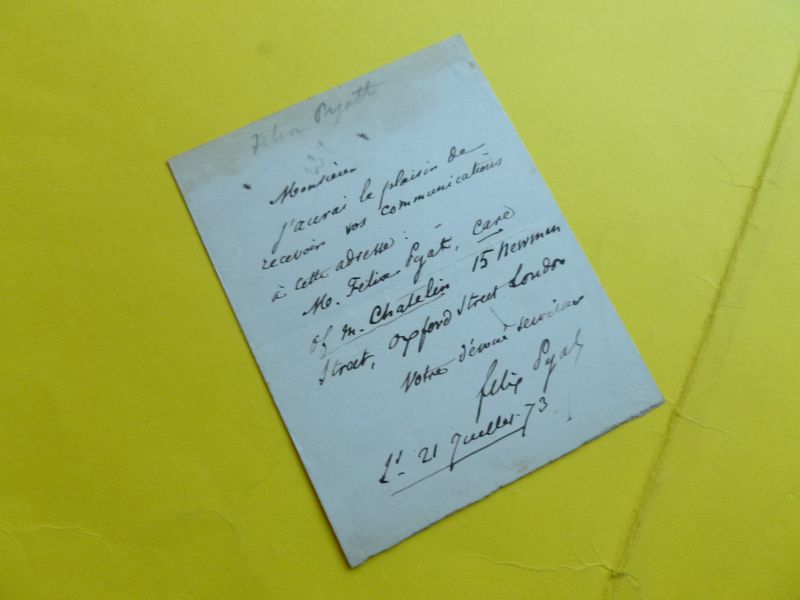 Felix Pyatt
Monsieur
J'aurai le plaisir de
recevoir vos communications
à cette adresse :
M. Felix Pyat, care
of M. Chatelin 15 Newman
Street, Oxford Street London
Votre dévoué serviteur
Felix Pyat
21 Juillet 73